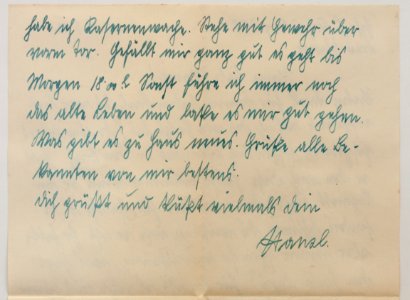 habe ich Kasernenwache. Stehe mit Gewehr über
vorm Tor. Gefällt mir ganz gut es geht bis
Morgen 18 Uhr. Sonst führe ich immer noch
das alte Leben und laße es mir gut gehen.
Was gibt es zu Haus neues. Grüße alle Be-
kannten von mir bestens.
Dich grüßt und küßt vielmals dein